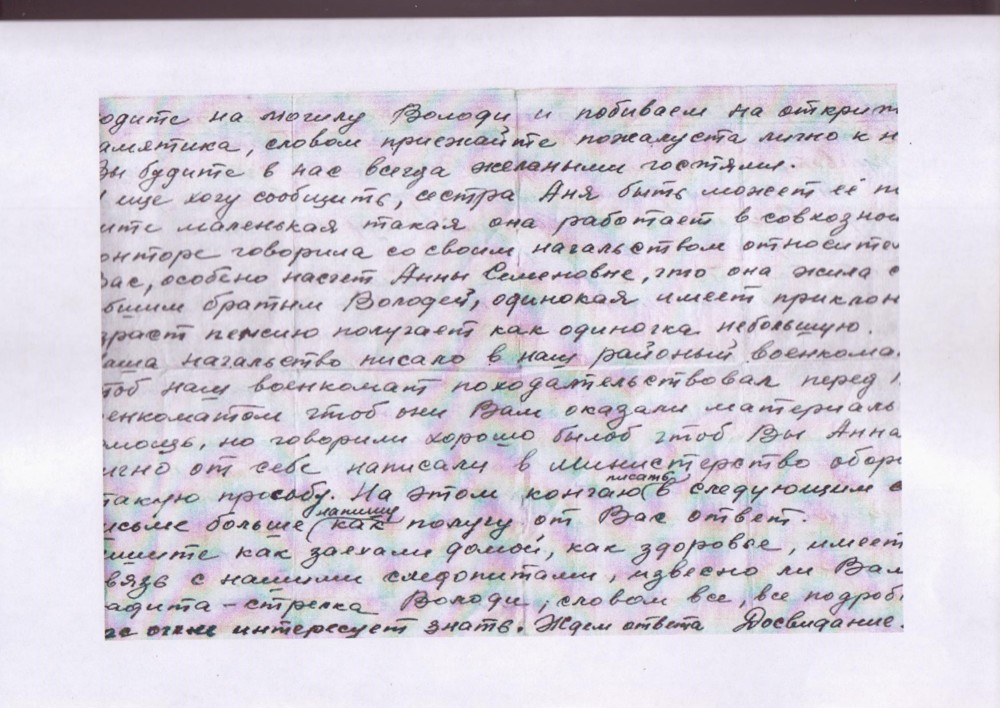 одите на могилу Володи и побиваем на открит
амятика, словом приєжайте пожалуста лично к н
Вы будите в нас всегда желаными гостями.
ище хочу сообщить, сестра Аня быть может её п
ите маленькая такая она работает в совхозной
онторе говорила со своим начальством относител
Вас, особено насчет Анны Семеновне, что она жила с
бшим братым Володей, одинокая имеет приклон
зраст пенсию получает как одиночка небольшую.
аша начальство писало в наш районый военкома
тоб наш военкомат походательствовал перед
енкоматом чтоб они Вам оказали материаль
мощь, но говорили хорошо былоб чтоб Вы Анна
ично от себе написали в Министерство обор
такую прособу. На этом кончаю писать в следующим
исьме больше напишу как получу от Вас ответ.
ишите как заехали домой, как здоровье, имеет
вязь с нашими следопитами, извесно ли Вам
адита-стрелка Володи, словом все, все подроб
ас очень интересует знать. Ждем ответа Досвидание.